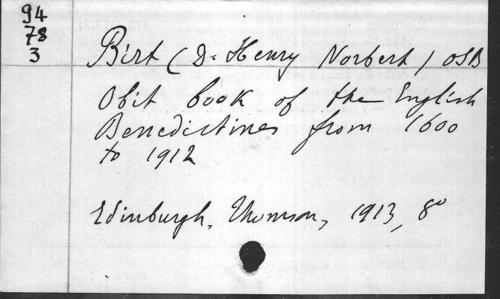 94
78
3
Birt (D. Henry Norbert) OSB
Obit book of the English
Benedictines from 1600
to 1912
Edinburgh, Thomson, 1913, 8°